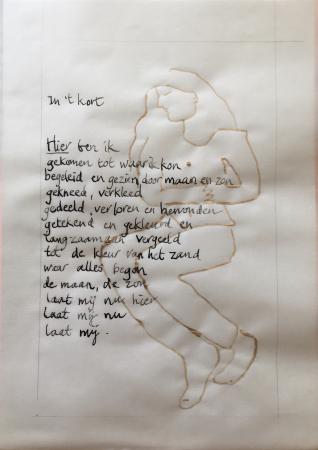 In 't kort
Hier ben ik
gekomen tot waar ik kon
begeleid en gezien door maan en zon
gekneed, verkleed
gedeeld, verloren en bewonden
getekend en gekleurd en
langzaamaan vergeeld
tot de kleur van het zand
waar alles begon
de maan, de zon
laat mij nu hier
laat mij nu
laat mij.